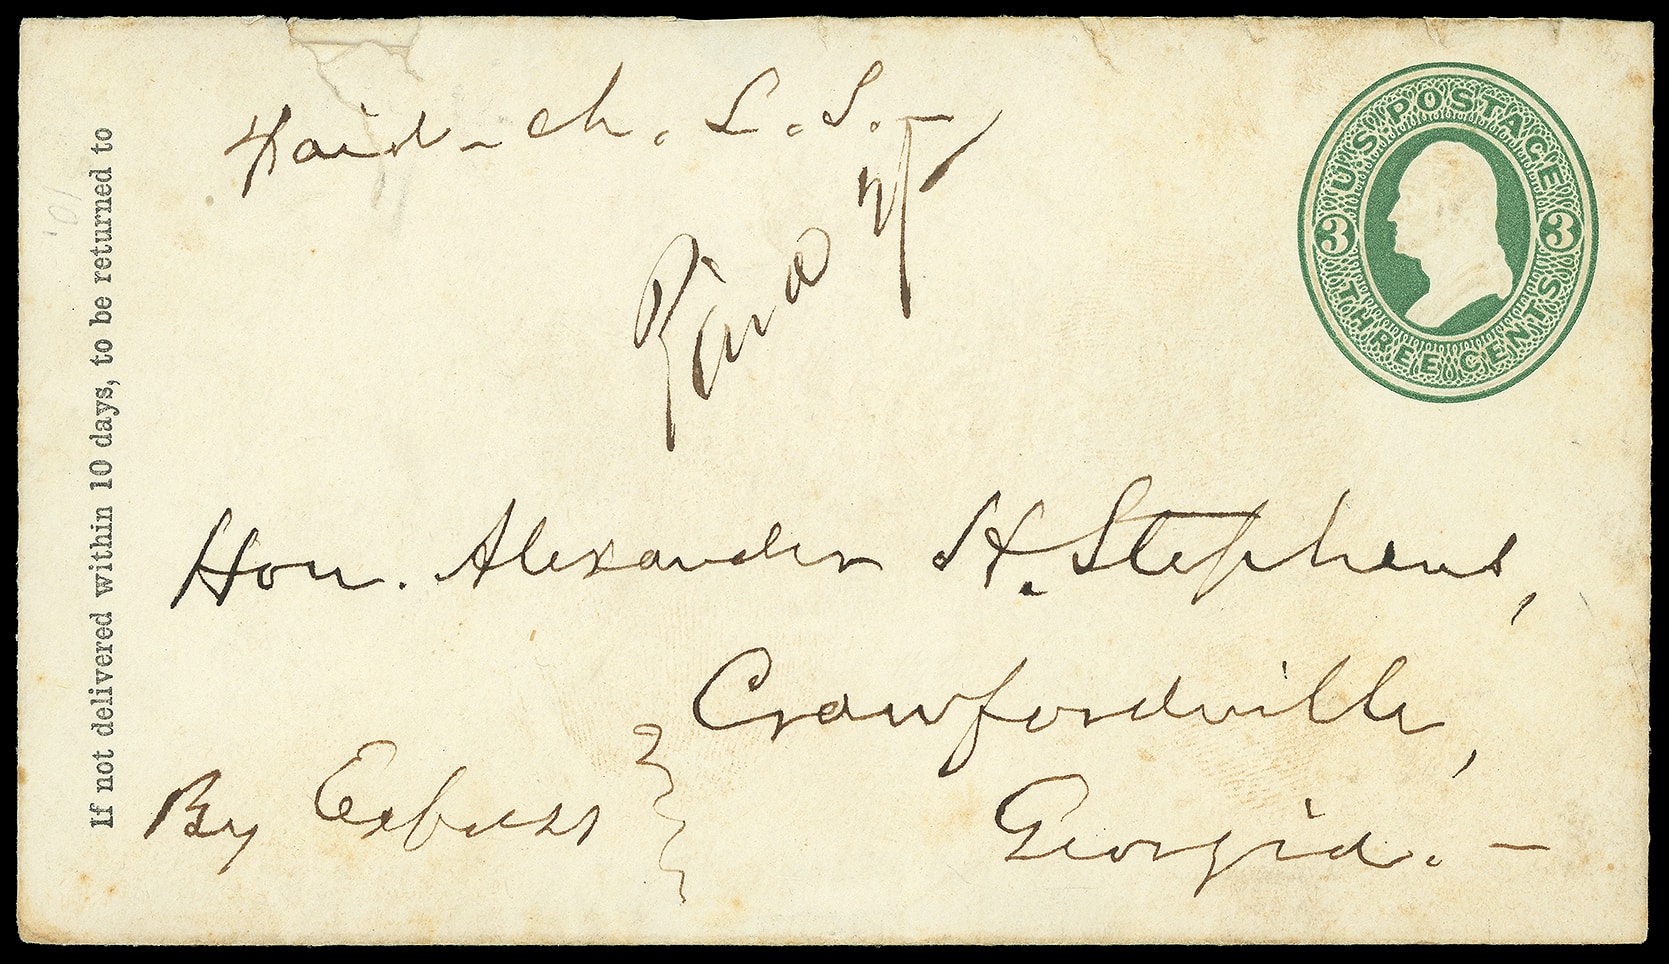 Paid - ch. L. S. -
U.S. POSTAGE
3 3
THREE CENTS
Paid
Hon. Alexander H. Stephens,
Crawfordville,
By Express
Georgia. -
If not delivered within 10 days, to be returned to